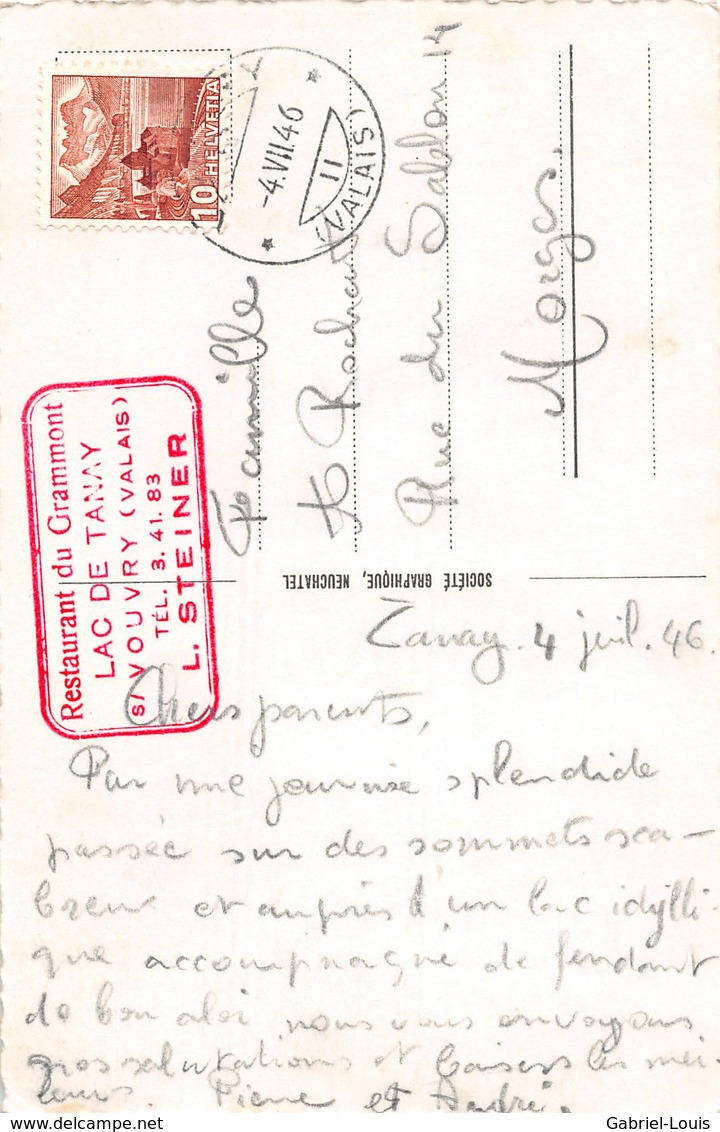 10 HELVETIA
-4.VII.46
11
(VALAIS)
Restaurant du Grammont
LAC DE TANAY
s/VOUVRY (VALAIS)
TÉL. 3.41.83
L. STEINER
Famille
Rochat
Rue du Sablon 14
Morges.
SOCIÉTÉ GRAPHIQUE, NEUCHATEL
Tanay. 4 juil. 46.
Chers parents,
Par une journée splendide
passée sur des sommets sca-
breux et auprès d'un lac idylli-
que accompagné de fendant
de bon aloi, nous vous envoyons
nos salutations et baisers les meil-
leurs. Pierre et André.
Gabriel-Louis